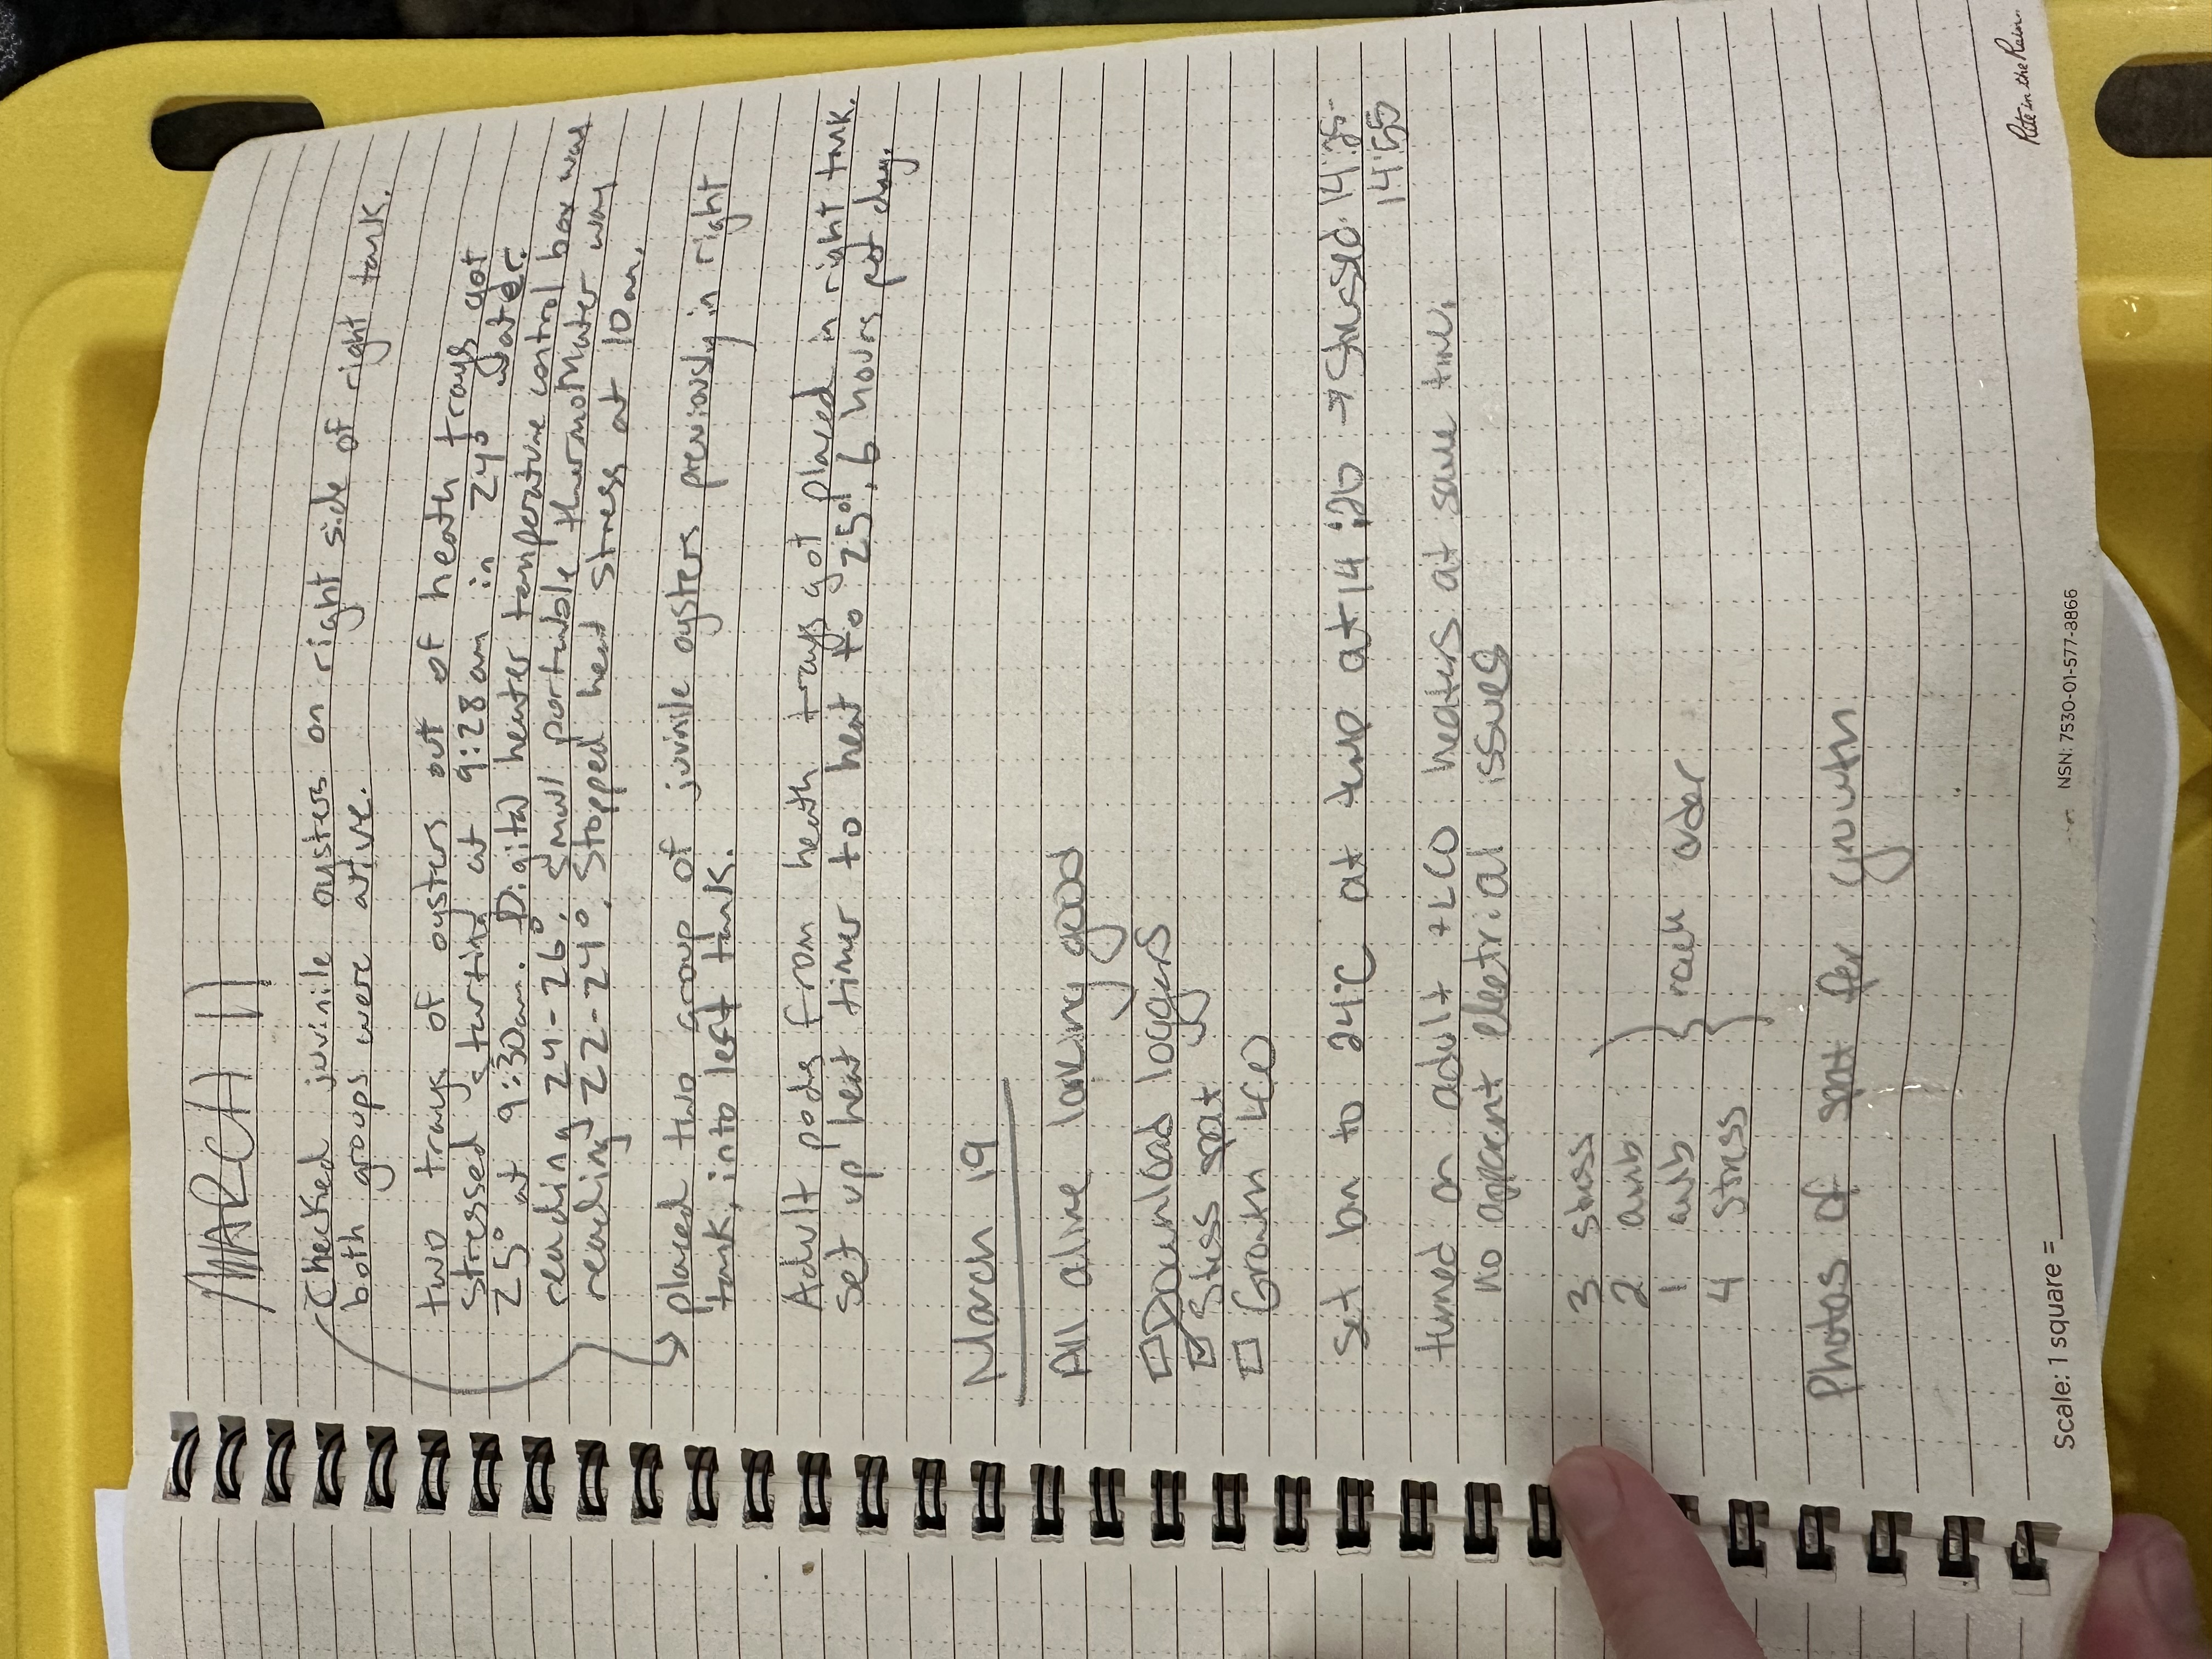 MARCH 11
Checked juvinile oysters on right side of right tank.
both groups were alive.
two trays of oysters out of heath trays got
stressed starting at 9:28am in 24° water.
25° at 9:30am. Digital heater temperature control box was
reading 24-26°. small portable thermoMater was
reading 22-24°. Stopped heat stress at 10am.
→ placed two group of juvinile oysters previously in right
tank, into left tank.
Adult pods from heath trays got placed in right tank.
set up heat timer to heat to 25°, 6 hours per day.
March 19
All alive looking good
☐ Download loggers
☑ Stess spat
☐ Growth LCO
Set bin to 24°C at temp at 14:20 → Stressed 14:25-
14:55
turned on adult + LCO heaters at same time.
no apparent eletrial issues
3 stress
2 amb
1 amb
4 stress
rack order
Photos of spat for growth
Scale: 1 square =
NSN: 7530-01-577-3866
Rite in the Rain